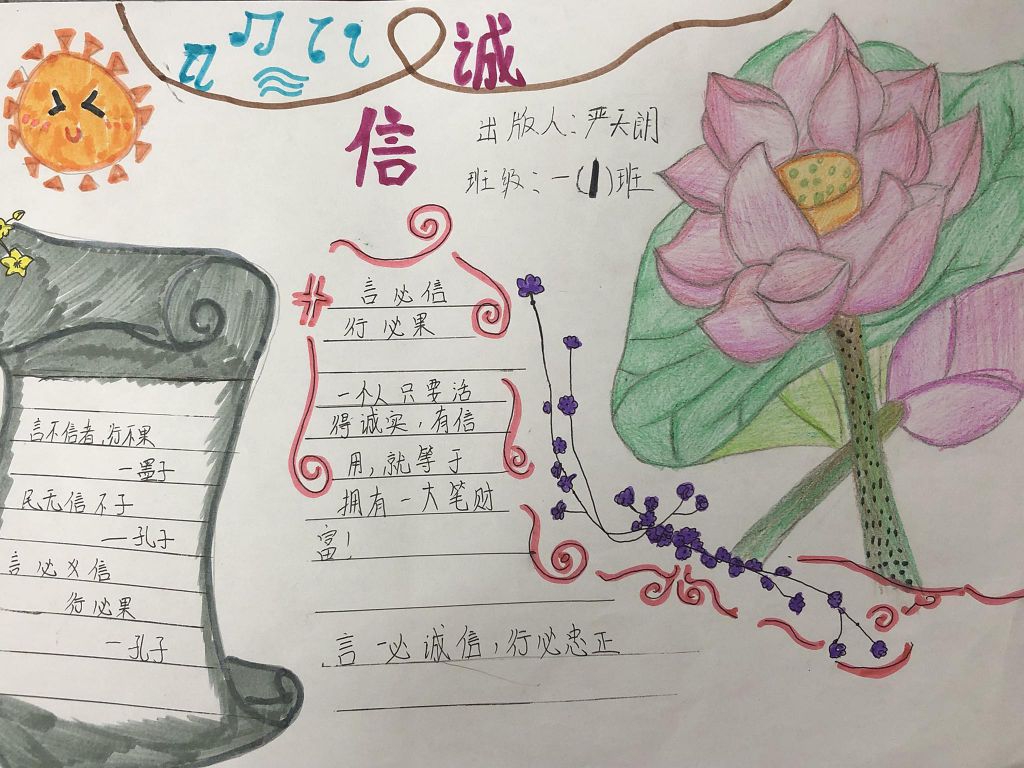 诚
信
出版人:严天朗
班级:一(1)班
言必信
行必果
一个人只要活
得诚实,有信
用,就等于
拥有一大笔财
富!
言必诚信,行必忠正
言不信者,行不果
—墨子
民无信不于
—孔子
言必义信
行必果
—孔子